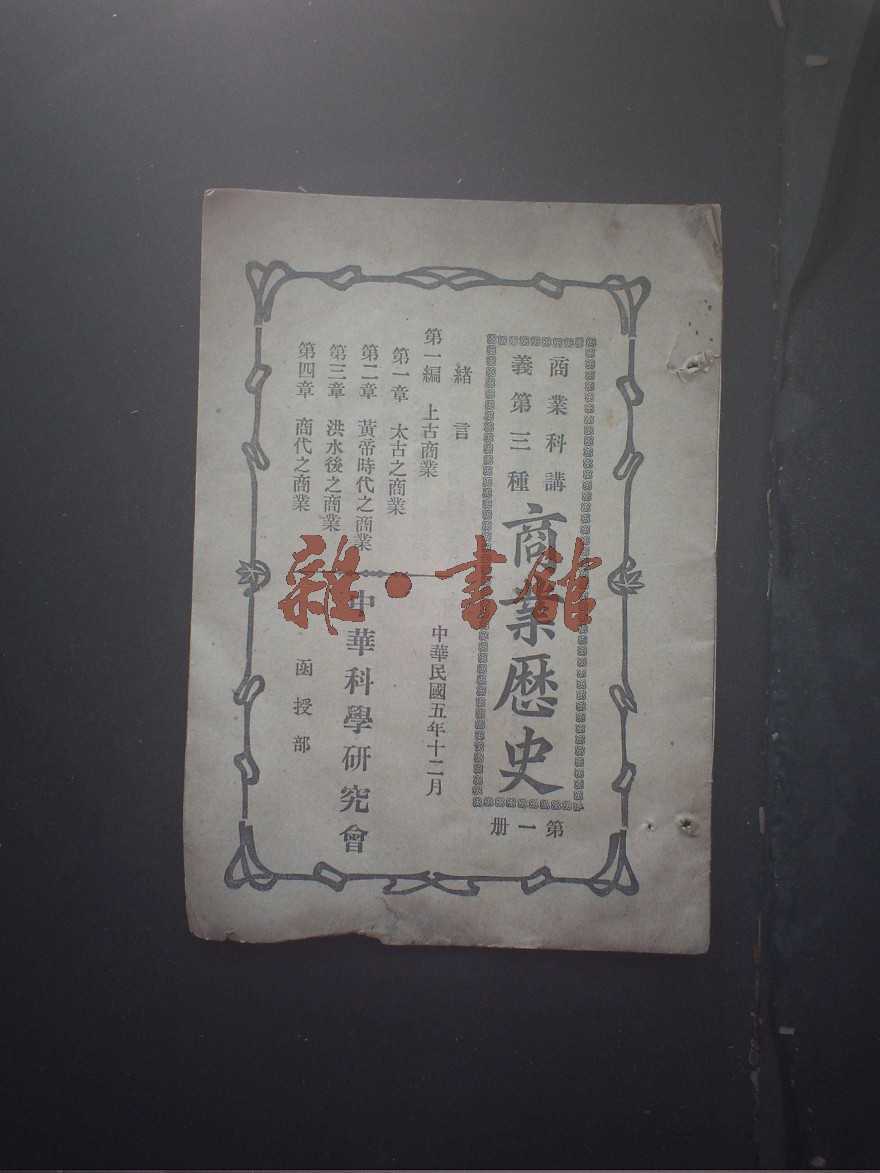 商業科講
義第三種
商業歷史
第一册
緒言
第一編 上古商業
第一章 太古之商業
第二章 黃帝時代之商業
第三章 洪水後之商業
第四章 商代之商業
中華民國五年十二月
中華科學研究會
函授部
雜·書館